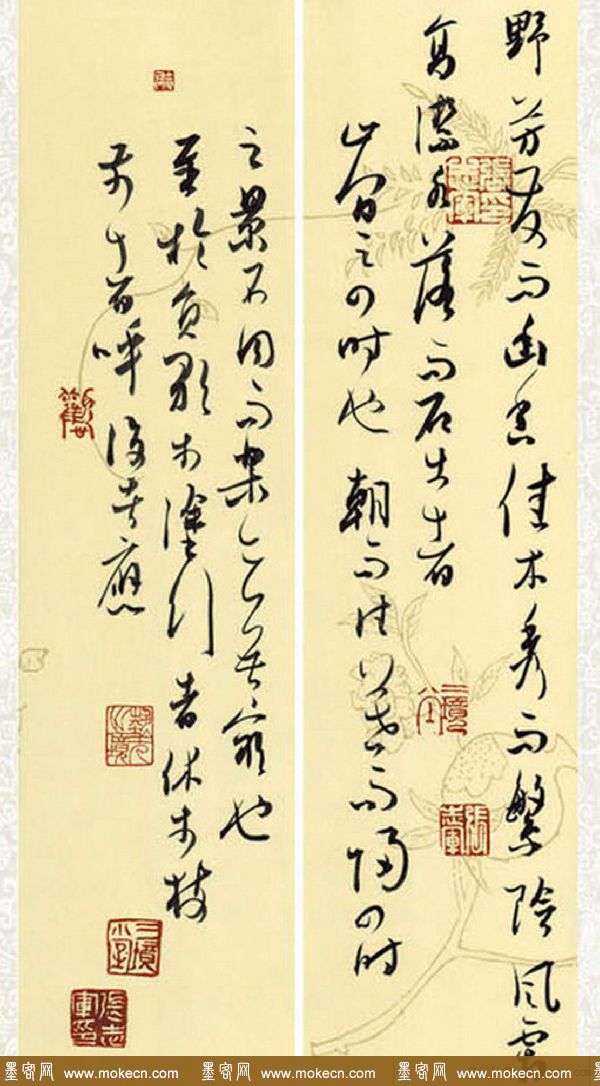 野芳發而幽香佳木秀而繁陰風霜
高潔水落而石出者
山間之四時也朝而往暮而歸四時
之景不同而樂亦無窮也
至於負歌於塗行者休於樹
前者呼後者應
墨客网 www.mokecn.com 墨客网 www.mokecn.com 墨客网 www.mokecn.com 墨客网